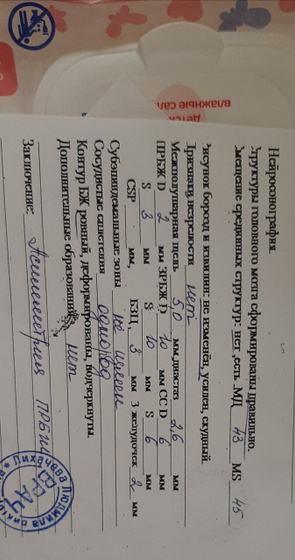 влажные сал
Нейросонография.
Структуры головного мозга сформированы правильно.
Смещение срединных структур: нет, есть МД 43 MS 45
Рисунок борозд и извилин: не изменён, усилен, скудный.
Признаки незрелости нет
Межполушарная щель 5,0 мм диастаз 2,6 мм
ПРБЖ D 2 мм ЗРБЖ D 10 мм CC D 6 мм
S 3 мм S 10 мм S 6 мм
CSP мм, БЗЦ 3 мм 3 желудочек 2 мм
Субэпиндемальные зоны не изм
Сосудистые сплетения однород
Контур БЖ ровный, деформированы, подчеркнуты.
Дополнительные образования: нет
Заключение: Асимметрия ПРБЖ
Лихачева Людмила
ВРАЧ